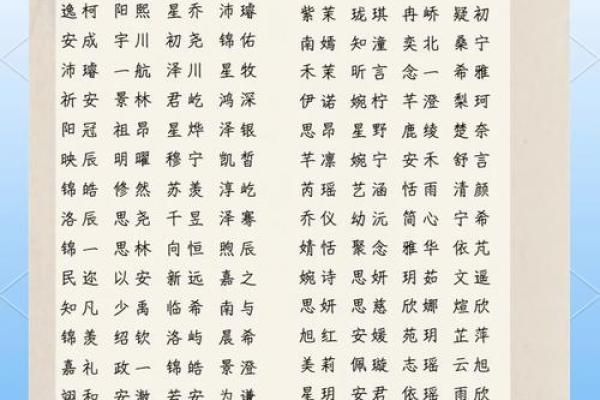 逸柯 阳熙 星乔 沛璿 紫茉 珑琪 冉峤 疑初
安成 宇川 初尧 锦佑 南嫣 知潼 奕北 桑宁
沛璿 一航 泽川 星牧 禾茉 昕言 念一 希雅
祈安 景林 君屹 鸿深 伊诺 婉柠 芊澄 梨珂
阳冠 祖昂 星烨 泽银 思昂 星野 鹿绫 楚奈
映辰 明曜 穆宁 凯皙 芊凛 婉宁 安禾 舒言
锦皓 修然 苏羡 淳屹 芮瑶 艺涵 恬雨 清颜
洛辰 思尧 千昱 泽骞 乔仪 幼沅 简心 宁希
锦一 思林 向恒 煦辰 婧恬 聚念 雅华 依芃
民迩 以安 新远 嘉之 婉诗 思妍 玥茹 文遥
知凡 少禹 临希 南与 思妍 思慈 欣娜 煊欣
锦羡 绍钦 洛屿 晨希 旭红 安媛 苑玥 芷萍
嘉礼 政一 锦皓 景澄 美莉 佩璇 志瑶 云旭
翊和 安澈 若安 为谦 星玥 安君 依瑶 雨欣